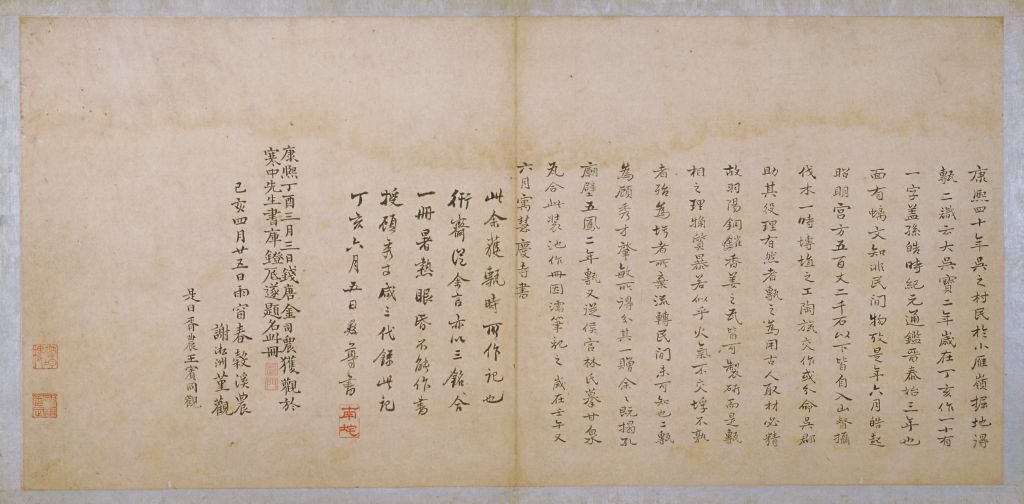 康熙四十年吳之村民於小雁嶺掘地得
甎二識云大吳寶二年歲在丁亥作一十有
一字蓋孫皓時紀元通鑑晉泰始三年也
面有螭文知非民間物攷是年六月皓起
昭明宮方五百丈二千石以下皆自入山督攝
伐木一時摶埴之工陶旊交作或分命吳郡
助其役理有然者甎之為用古人取材必精
故羽陽銅雀香姜之瓦皆可製研而是甎
相之理觕質暴若似乎火氣不交埏不孰
者殆為埓者所棄流轉民間未可知也二甎
為顧秀才肇敏所得分其一贈余余既搨孔
廟壁五鳳二年甎又從侯官林氏摹甘泉
瓦合此裝池作冊因濡筆記之歲在壬午又
六月寓慧慶寺書
此余獲甎時所作記也
衎齋從舍言亦以三銘合
一冊暑熱眼昏不能作書
授碩秀才咸三代錄此記
丁亥六月五日彝尊書
南垞
康熙丁酉三月三日錢唐金司農獲觀於
寒中先生書庫鐙底遂題名此冊
己亥四月廿五日雨窗春穀溪農
謝淞洲堇觀
是日胥農王賓同觀